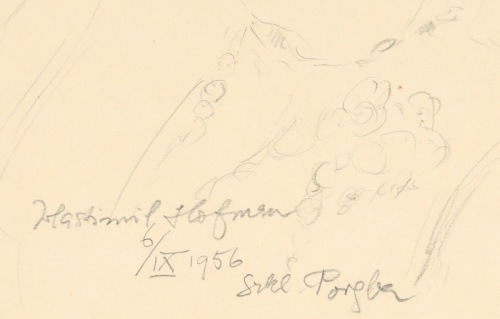 Wlastimil Hofman
6/IX 1956
Szkl. Poręba